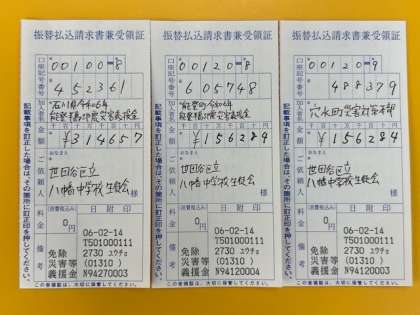 振替払込請求書兼受領証
口座記号番号
00100 8
452361
加入者名
石川県令和6年
能登半島地震災害義援金
金額
千百十万千百十円
¥314657
ご依頼人
おなまえ
世田谷区立
八幡中学校生徒会
様
料金
(消費税込み)
0円
日附印
備考
06-02-14
T501000111
2730 ユウチョ
(01310)
N94270003
免除
災害等
義援金
記載事項を訂正した場合は、その箇所に訂正印を押してください。
この受領証は、大切に保管してください。
振替払込請求書兼受領証
口座記号番号
00120 8
605748
加入者名
能登町令和6年
能登半島地震災害義援金
金額
千百十万千百十円
¥156284
ご依頼人
おなまえ
世田谷区立
八幡中学校生徒会
様
料金
(消費税込み)
0円
日附印
備考
06-02-14
T501000111
2730 ユウチョ
(01310)
N94120004
免除
災害等
義援金
記載事項を訂正した場合は、その箇所に訂正印を押してください。
この受領証は、大切に保管してください。
振替払込請求書兼受領証
口座記号番号
00120 9
488379
加入者名
穴水町災害対策本部
金額
千百十万千百十円
¥156284
ご依頼人
おなまえ
世田谷区立
八幡中学校生徒会
様
料金
(消費税込み)
0円
日附印
備考
06-02-14
T501000111
2730 ユウチョ
(01310)
N94120003
免除
災害等
義援金
記載事項を訂正した場合は、その箇所に訂正印を押してください。
この受領証は、大切に保管してください。